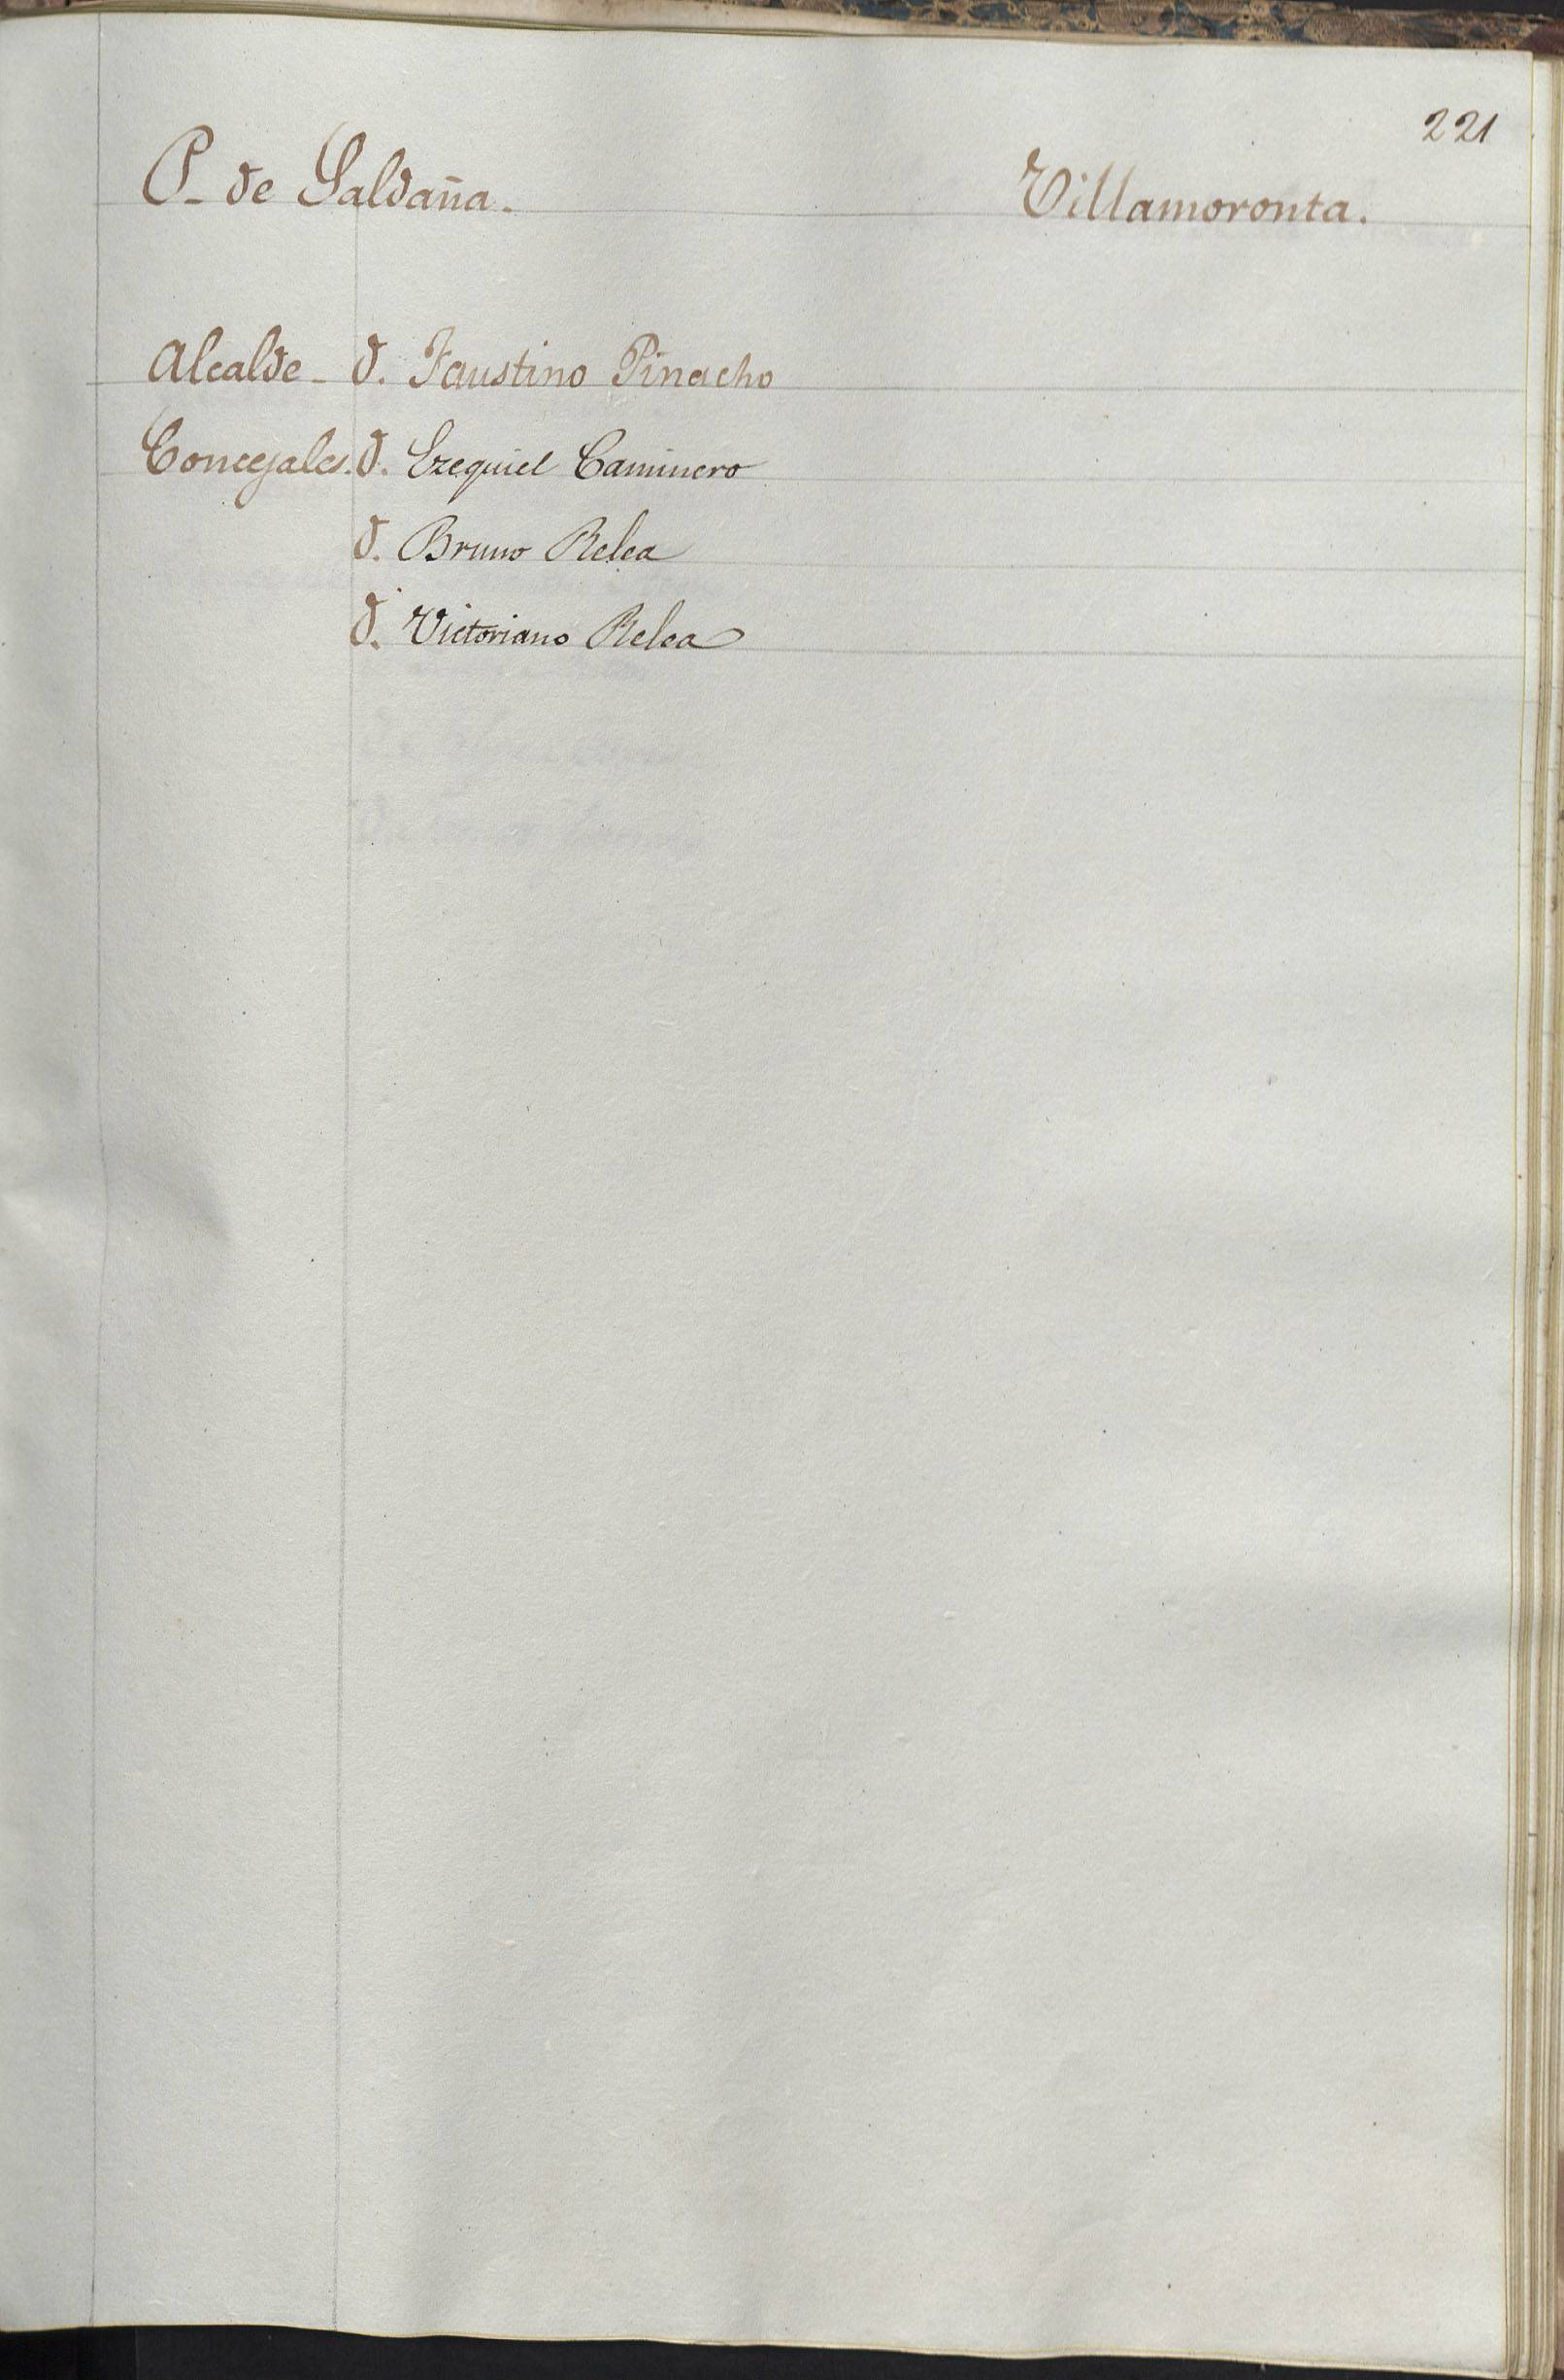 221
P. de Saldaña. Villamoronta.
Alcalde - D. Faustino Pinacho
Concejales. D. Ezequiel Caminero
D. Bruno Relea
D. Victoriano Relea